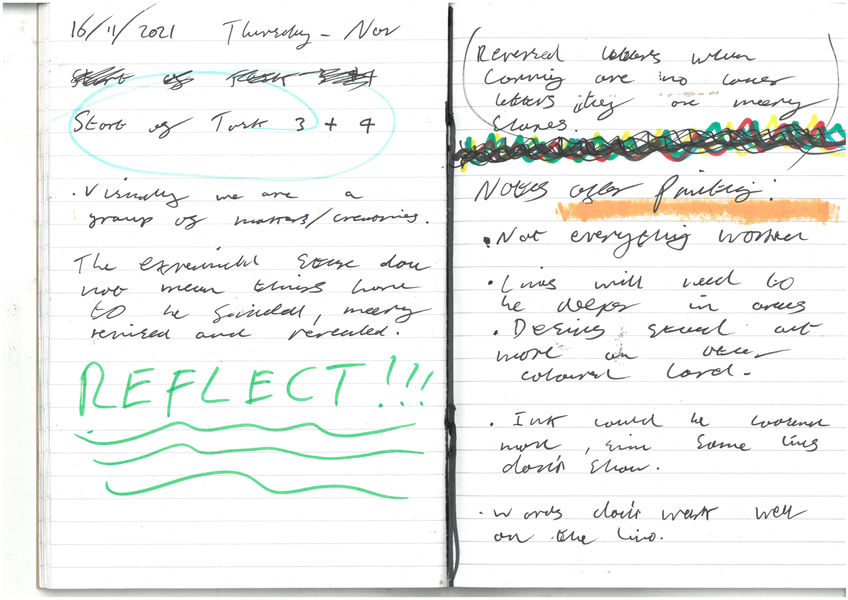 16/11/2021 Thursday - Nov
Start of Task 3 + 4
. Visually we are a
group of makers/creatories.
The experimental stage does
not mean things have
to be finished, merely
revised and revealed.
REFLECT!!!
(Reversed letters when
carving are no longer
letters they are merely
shapes.)
Notes after printing:
• Not everything worked
• Lines will need to
be deeper in areas
• Designs stand out
more on
coloured card.
• Ink could be
more, some lines
don't show.
• words don't work well
on the lino.